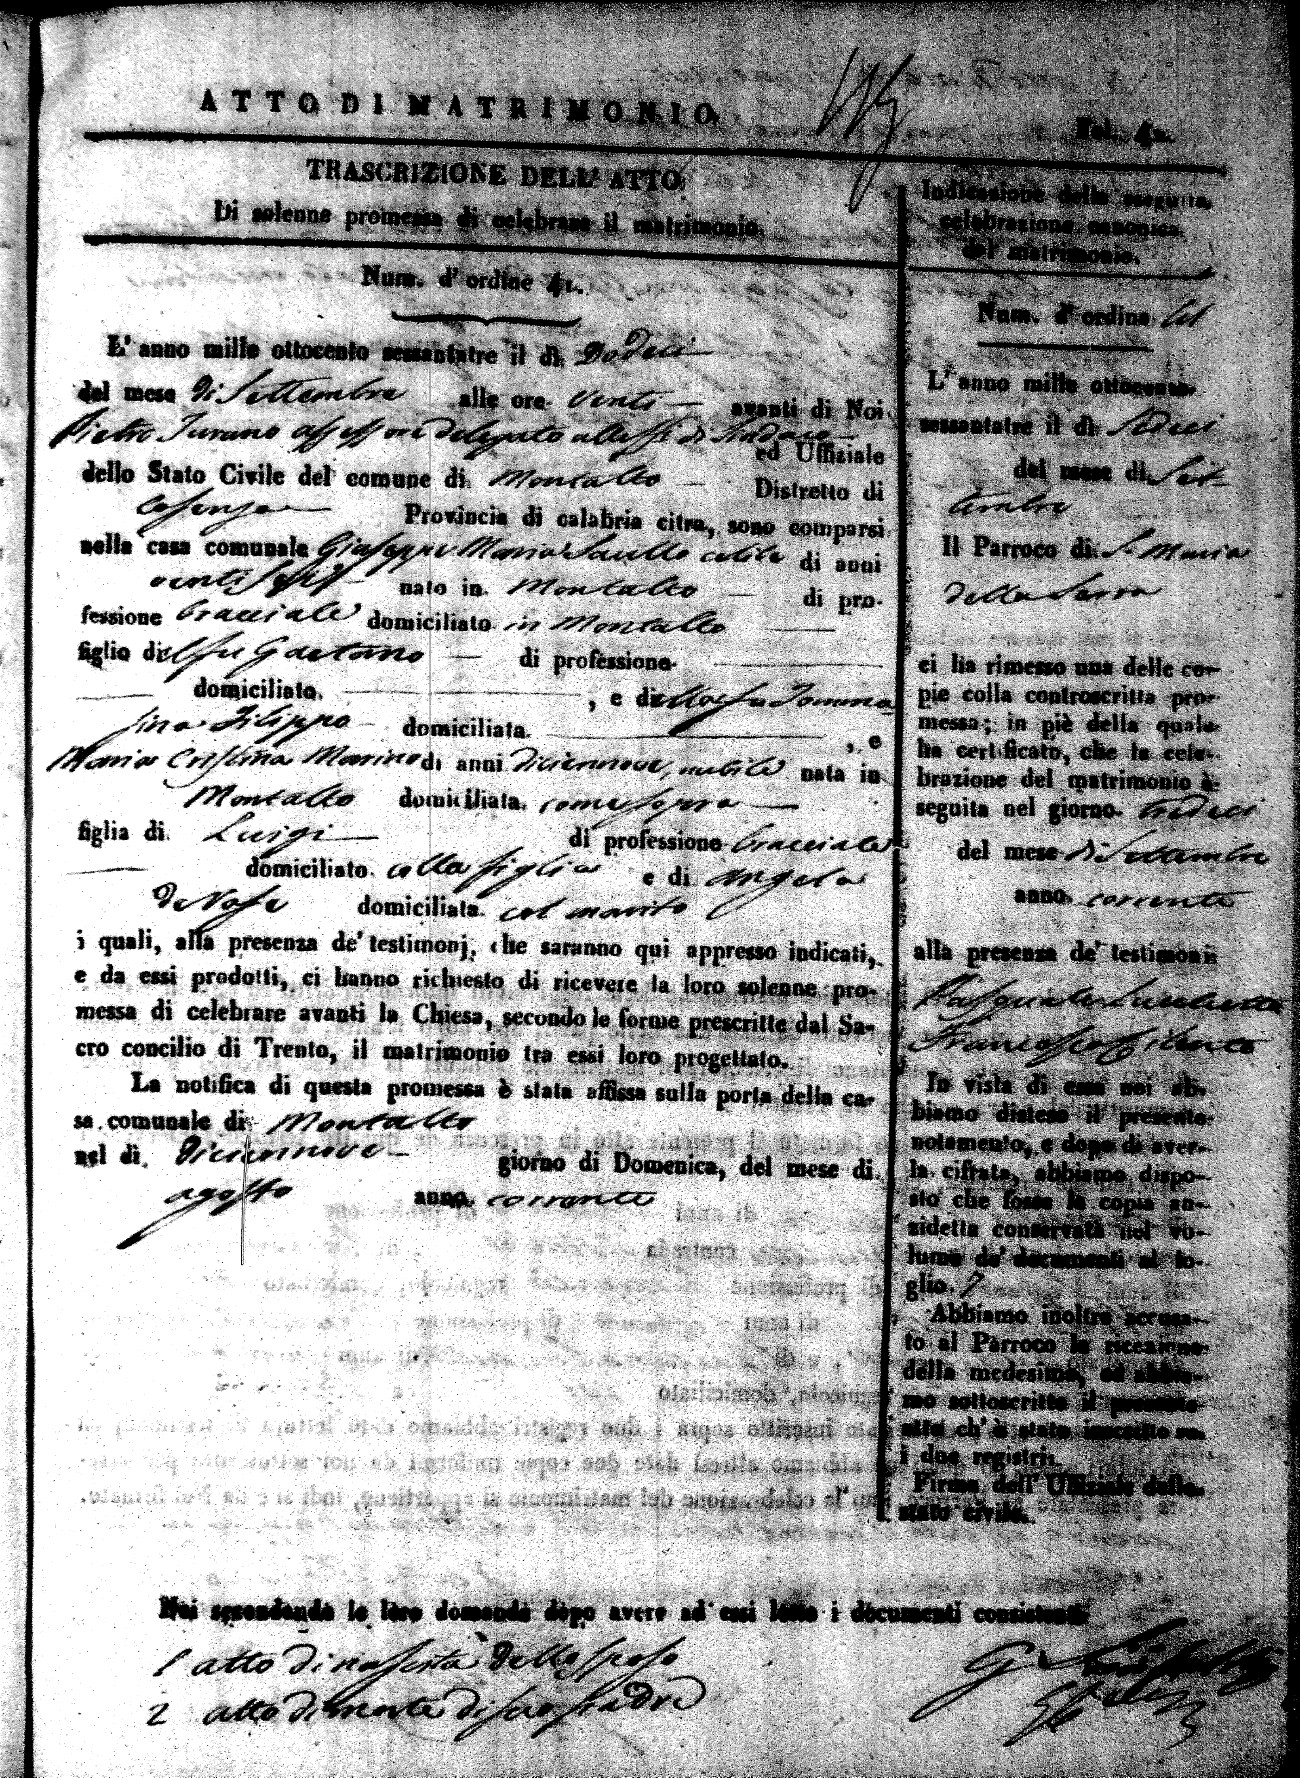 ATTO DI MATRIMONIO
Fol. 41.
TRASCRIZIONE DELL' ATTO
Di solenne promessa di celebrare il matrimonio.
Num. d' ordine 41.
L' anno mille ottocento sessantatre il dì Dodeci
del mese di Settembre alle ore venti avanti di Noi
Pietro Turano assessore delegato alle di Sindaco
ed Uffiziale
dello Stato Civile del comune di Montalto Distretto di
Cosenza Provincia di calabria citra, sono comparsi
nella casa comunale Giuseppe Maria Saullo celibe di anni
venti nato in Montalto di pro-
fessione bracciale domiciliato in Montalto
figlio di fu Gaetano di professione
domiciliato , e di fu Tomma
sina Filippo domiciliata , e
Maria Cristina Marino di anni diciennove, nubile nata in
Montalto domiciliata come sopra
figlia di Luigi di professione bracciale
domiciliato colla figlia e di Angela
de Rose domiciliata col marito
i quali, alla presenza de' testimonj, che saranno qui appresso indicati,
e da essi prodotti, ci hanno richiesto di ricevere la loro solenne pro-
messa di celebrare avanti la Chiesa, secondo le forme prescritte dal Sa-
cro concilio di Trento, il matrimonio tra essi loro progettato.
La notifica di questa promessa è stata affissa sulla porta della ca-
sa comunale di Montalto
nel dì diciennove giorno di Domenica, del mese di
agosto anno corrente
Noi secondando le loro domande dopo avere ad essi letto i documenti consistenti
1 atto di nascita dello sposo
2 atto di morte di suo padre
Indicazione della seguita
celebrazione canonica
del matrimonio.
Num. d' ordine 41
L' anno mille ottocento
sessantatre il dì Sedeci
del mese di Set-
tembre
Il Parroco di S. Maria
della Serra
ci ha rimesso una delle co-
pie colla controscritta pro-
messa; in piè della quale
ha certificato, che la cele-
brazione del matrimonio è
seguita nel giorno tredeci
del mese di Settembre
anno corrente
alla presenza de' testimonii
Pasquale
Francesco
In vista di essa noi ab-
biamo disteso il presente
notamento, e dopo di aver-
la cifrata, abbiamo dispo-
sto che fosse la copia an-
zidetta conservata nel vo-
lume de' documenti al fo-
glio. 7
Abbiamo inoltre accusa-
to al Parroco la ricezione
della medesima, ed abbia-
mo sottoscritto il presente
atto ch' è stato inscritto su
i due registri.
Firma dell' Uffiziale dello
stato civile.